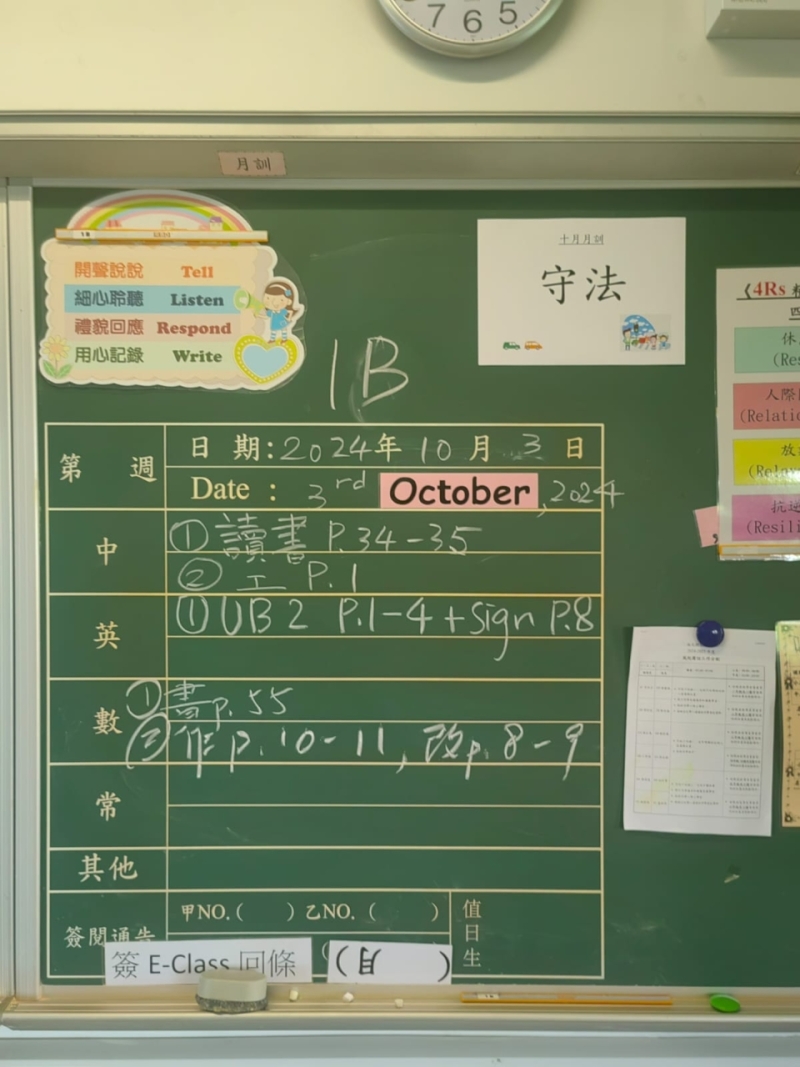 7 6 5
月訓
1B
開聲說說 Tell
細心聆聽 Listen
禮貌回應 Respond
用心記錄 Write
十月月訓
守法
《4Rs
(Res
人際
(Relatio
(Relax
抗逆
(Resili
1B
第 週
日 期:2024年 10 月 3 日
Date : 3rd October, 2024
中
① 讀書 P.34-35
② 工 P.1
英
① UB2 P.1-4 + sign P.8
數
① 書p.55
② 作p.10-11, 改p.8-9
常
其他
簽閱通告
甲NO.( ) 乙NO.( )
值日生
簽 E-Class 回條 (月 )